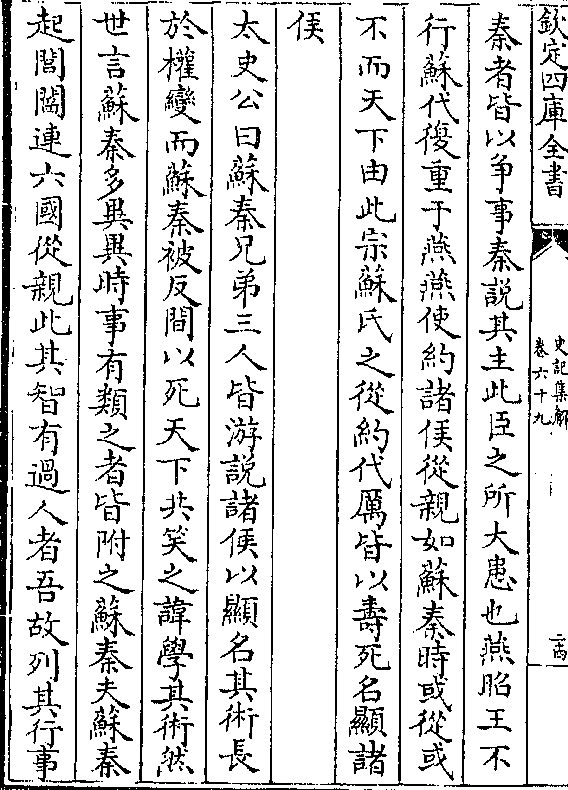 欽定四庫全書
史記集解
卷六十九
二十四
秦者皆以争事秦說其主此臣之所大患也燕昭王不
行蘇代復重于燕燕使約諸侯從親如蘇秦時或從或
不而天下由此宗蘇氏之從約代厲皆以壽死名顯諸
侯
太史公曰蘇秦兄弟三人皆游說諸侯以顯名其術長
於權變而蘇秦被反間以死天下共笑之諱學其術然
世言蘇秦多異異時事有類之者皆附之蘇秦夫蘇秦
起閭閻連六國從親此其智有過人者吾故列其行事